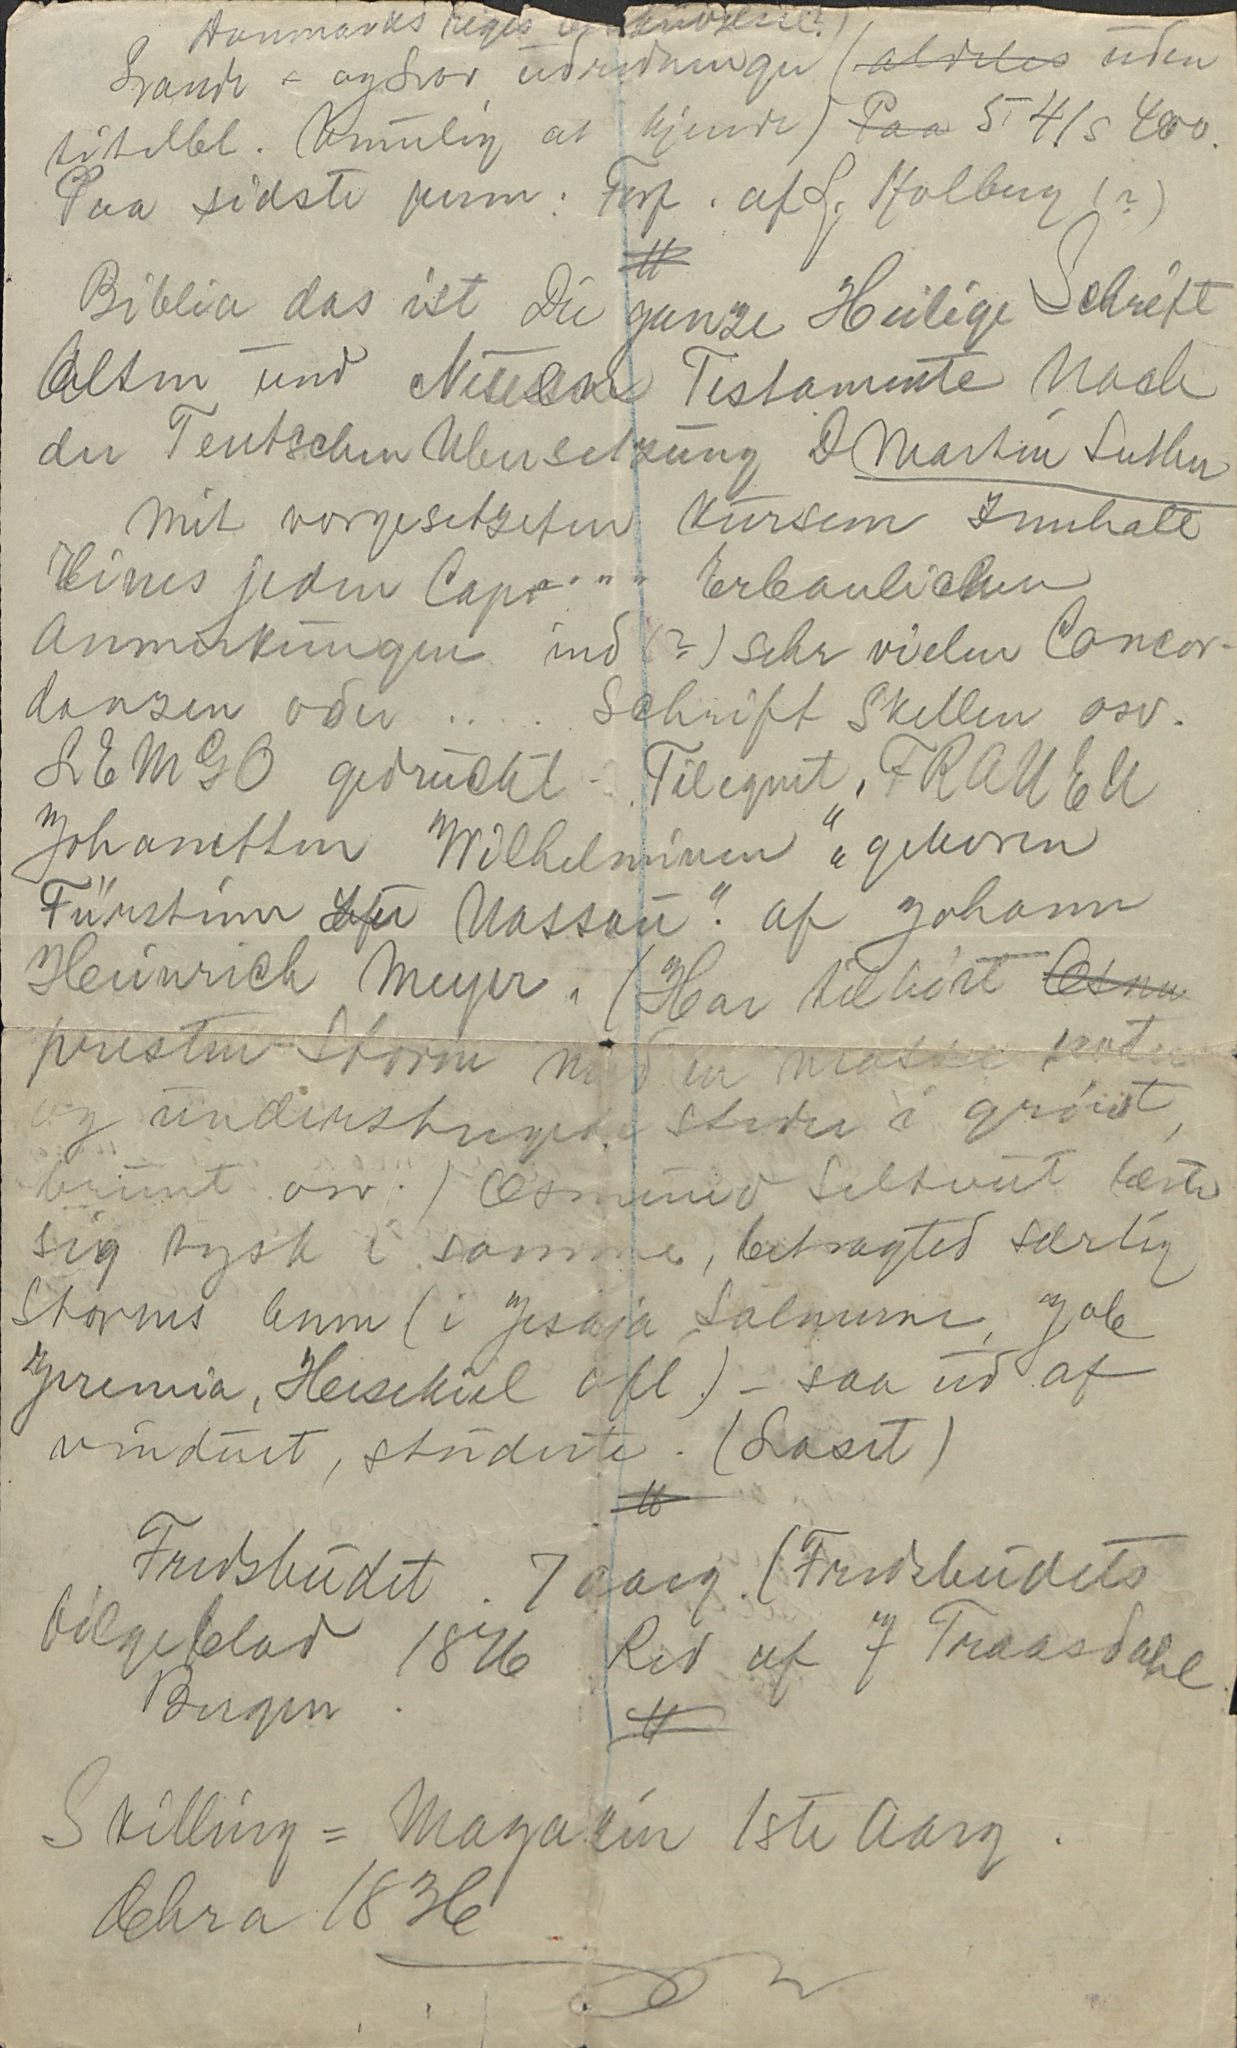 Danmarks riges beskrivelse?)
Lande - og Lov udredninger (aldeles uden
titelbl. Umulig at kjende) Paa 5 4/s 400.
Paa sidste perm: Forf. af L. Holberg (?)
#
Biblia das ist Die ganze Heilige Schrift
Alten und Neuen Testamente Nach
der Teutschen Ubersetzung D Martin Luther
Mit vorgesetzeten Kursem Innhalt
Eines jeden Cap.... Erbaulichen
Anmerkungen ind (?) sehr vielen Concor-
danzen oder .... Schrift Skellen osv.
LEMGO gedruckt - Tilegnet, FRAUEN
Johanetten Wilhelminen "geboren
Fürstinn zu Nassau". af Johann
Heinrich Meyer. (Har tilhört
presten Storm med en masse noter
og understregede steder i grönt,
brunt osv.) Osmund Seltveit lærte
sig tysk i samme, betragted særlig
Storms bem (i Jesaja, Salmerne, Job
Jeremia, Hesekiel ofl.) - saa ud af
vinduet, studerte. (Laset)
#
Fredsbudet. 7 aarg. (Fredsbudets
Følgeblad 1876 Red af J Traasdahl
Bergen.
#
Skilling = Magazin 1ste Aarg.
Chra 1836